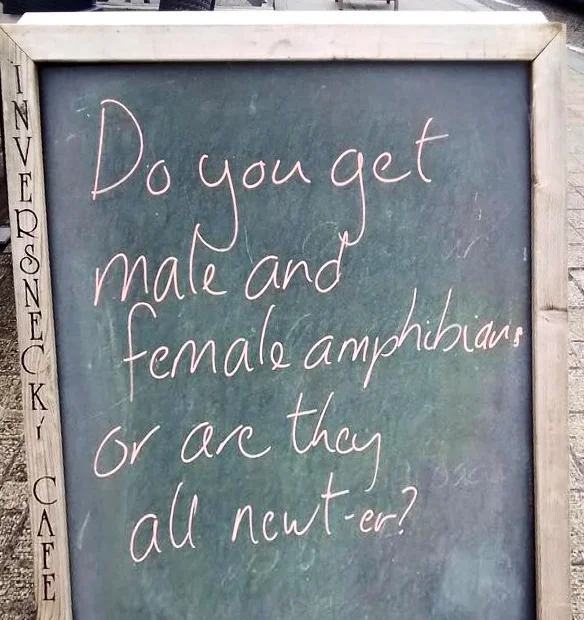 INVERSNECKY CAFE
Do you get
male and
female amphibians
or are they
all newt-er?